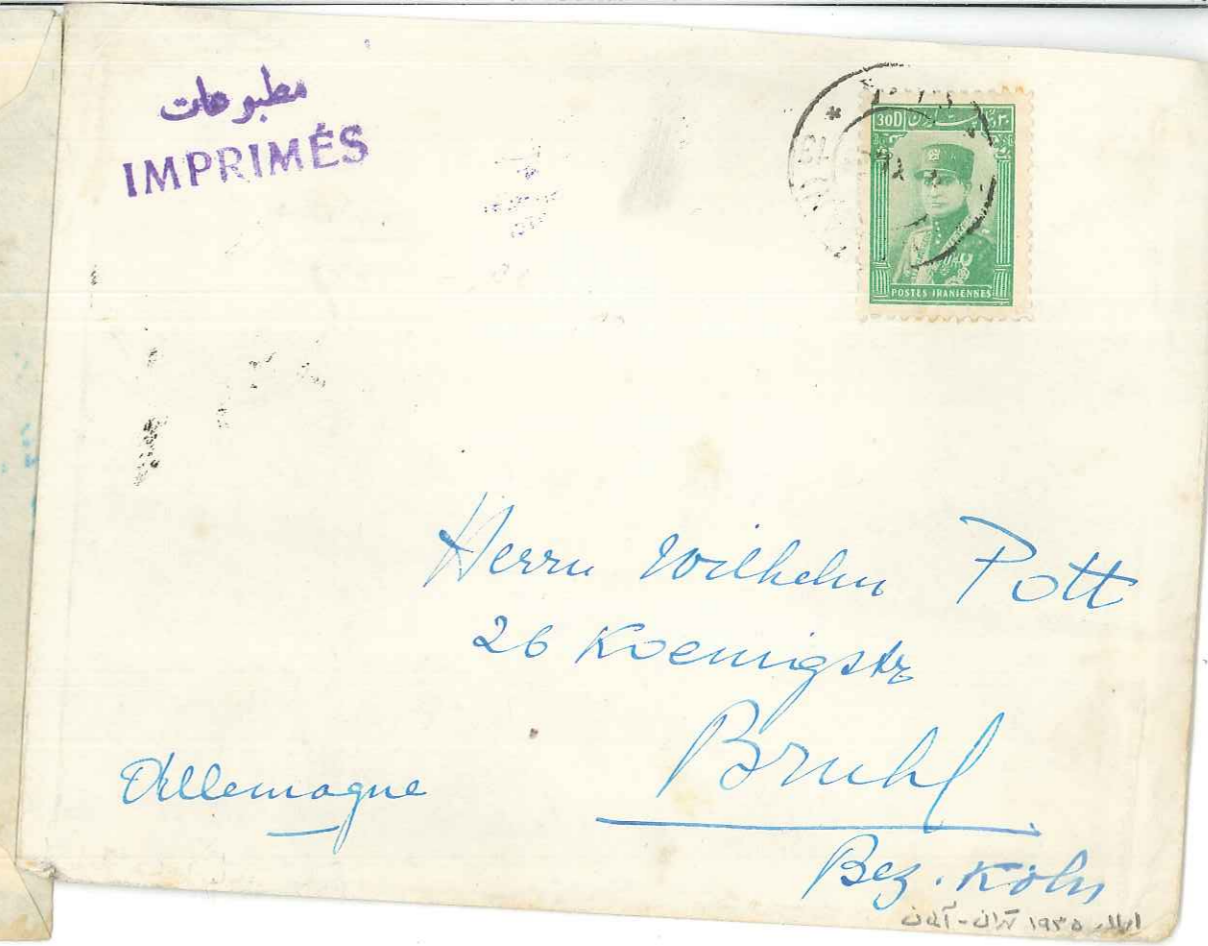 مطبوعات
IMPRIMÉS
30D پست ایران ۳۰
POSTES IRANIENNES
Herrn Wilhelm Pott
26 Koenigstr
Bruhl
Allemagne
Bez. Köln
۱۹۳۵ تهران - آلمان